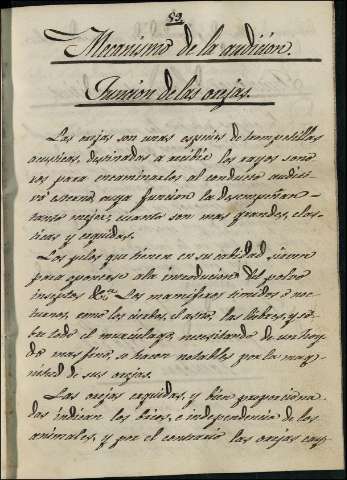 59.
Mecanismo de la audición.
Función de las orejas.
Las orejas son unas especies de trompetillas
acusticas, destinadas a recibir los rayos sono
ros para encaminarlos al conducto auditi
vó esterno, cuya funcion la desempeñan
tanto mejor, cuanto son mas grandes, elas
ticas y erguidas.
Los pelos que tienen en su cabidad sirven
para oponerse ala introduccion del polvo
insectos &.a Los mamiferos timidos ó noc
turnos, como los ciervos, el asno, las liebres, y so
bre todo el murciélago, necesitando de un hoy
do mas fino, se hacen notables por la mag
nitud de sus orejas.
Las orejas erguidas, y bien proporciona
das indican los brios, e independencia de los
animales, y por el contrario las orejas cay